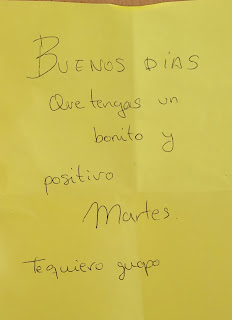 BUENOS DIAS
Que tengas un
bonito y
positivo
Martes.
Te quiero guapo